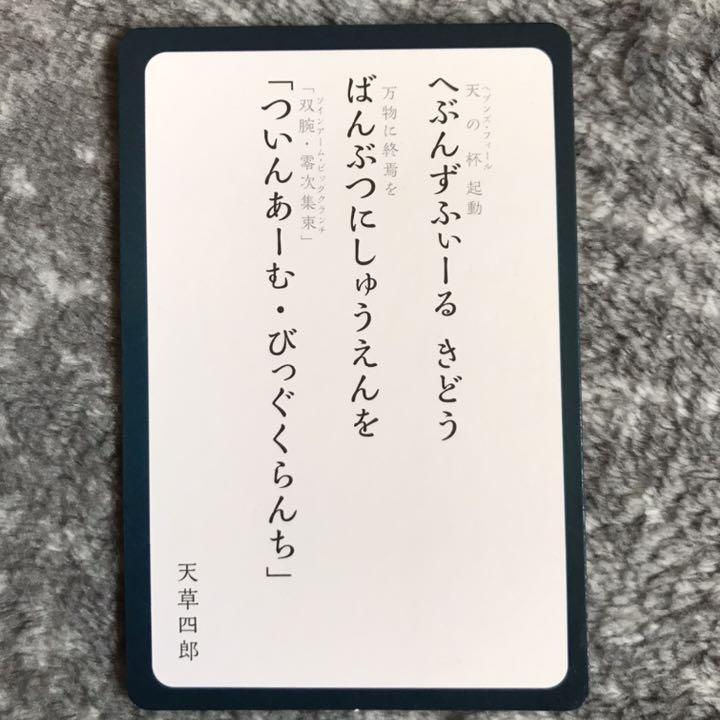 へぶんずふぃーる きどう
ヘブンズ・フィール
天の杯 起動
ばんぶつにしゅうえんを
万物に終焉を
「ついんあーむ・びっぐくらんち」
ツインアーム・ビッククランチ
「双腕・零次集束」
天草四郎